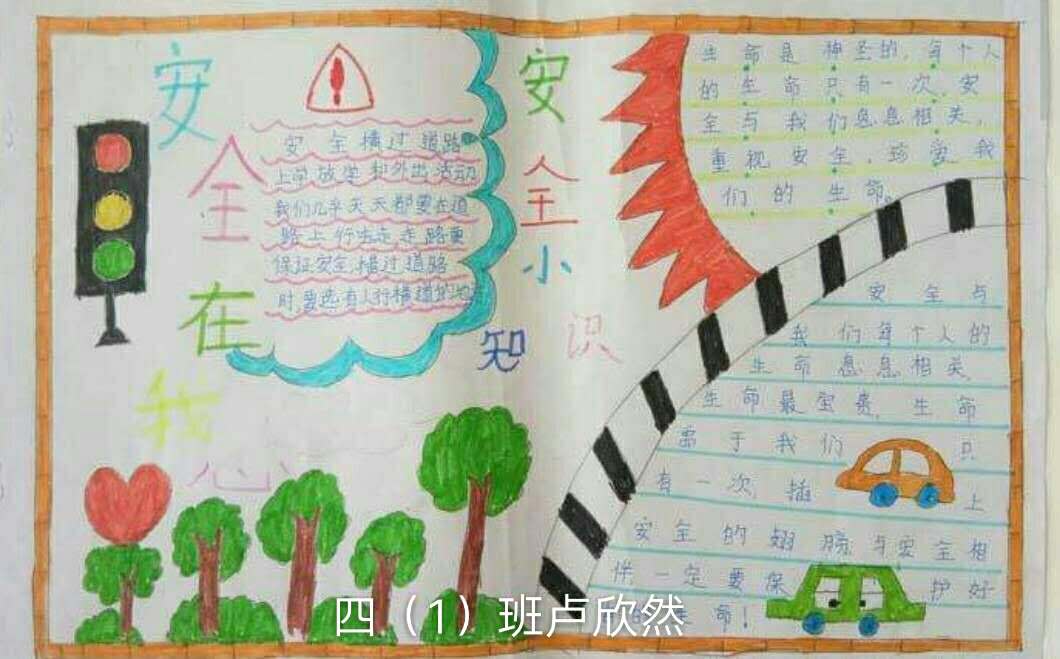 安全在我心
安全横过道路
上学放学和外出活动
我们几乎天天都要在道
路上行走走路要
保证安全,横过道路
时,要选有人行横道的地
安全小知识
生命是神圣的,每个人
的生命只有一次,安
全与我们息息相关,
重视安全,珍爱我
们的生命。
安全与
我们每个人的
生命息息相关,
生命最宝贵,生命
属于我们只
有一次,插上
安全的翅膀,与安全相
伴,一定要保护好
生命!
四（1）班卢欣然